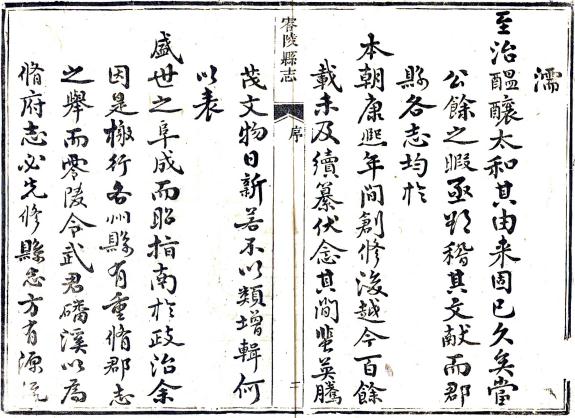 濡
至治醖釀太和其由来固已久矣當
公餘之暇亟欲稽其文献而郡
縣各志均於
本朝康熙年間創修後越今百餘
載未及續纂伏念其間蜚英騰
零陵縣志
序
二
茂文物日新若不以類增輯何
以表
盛世之阜成而昭指南於政治余
因是檄行各州縣有重脩郡志
之舉而零陵令武君磻溪以為
脩府志必先修縣志方有源流